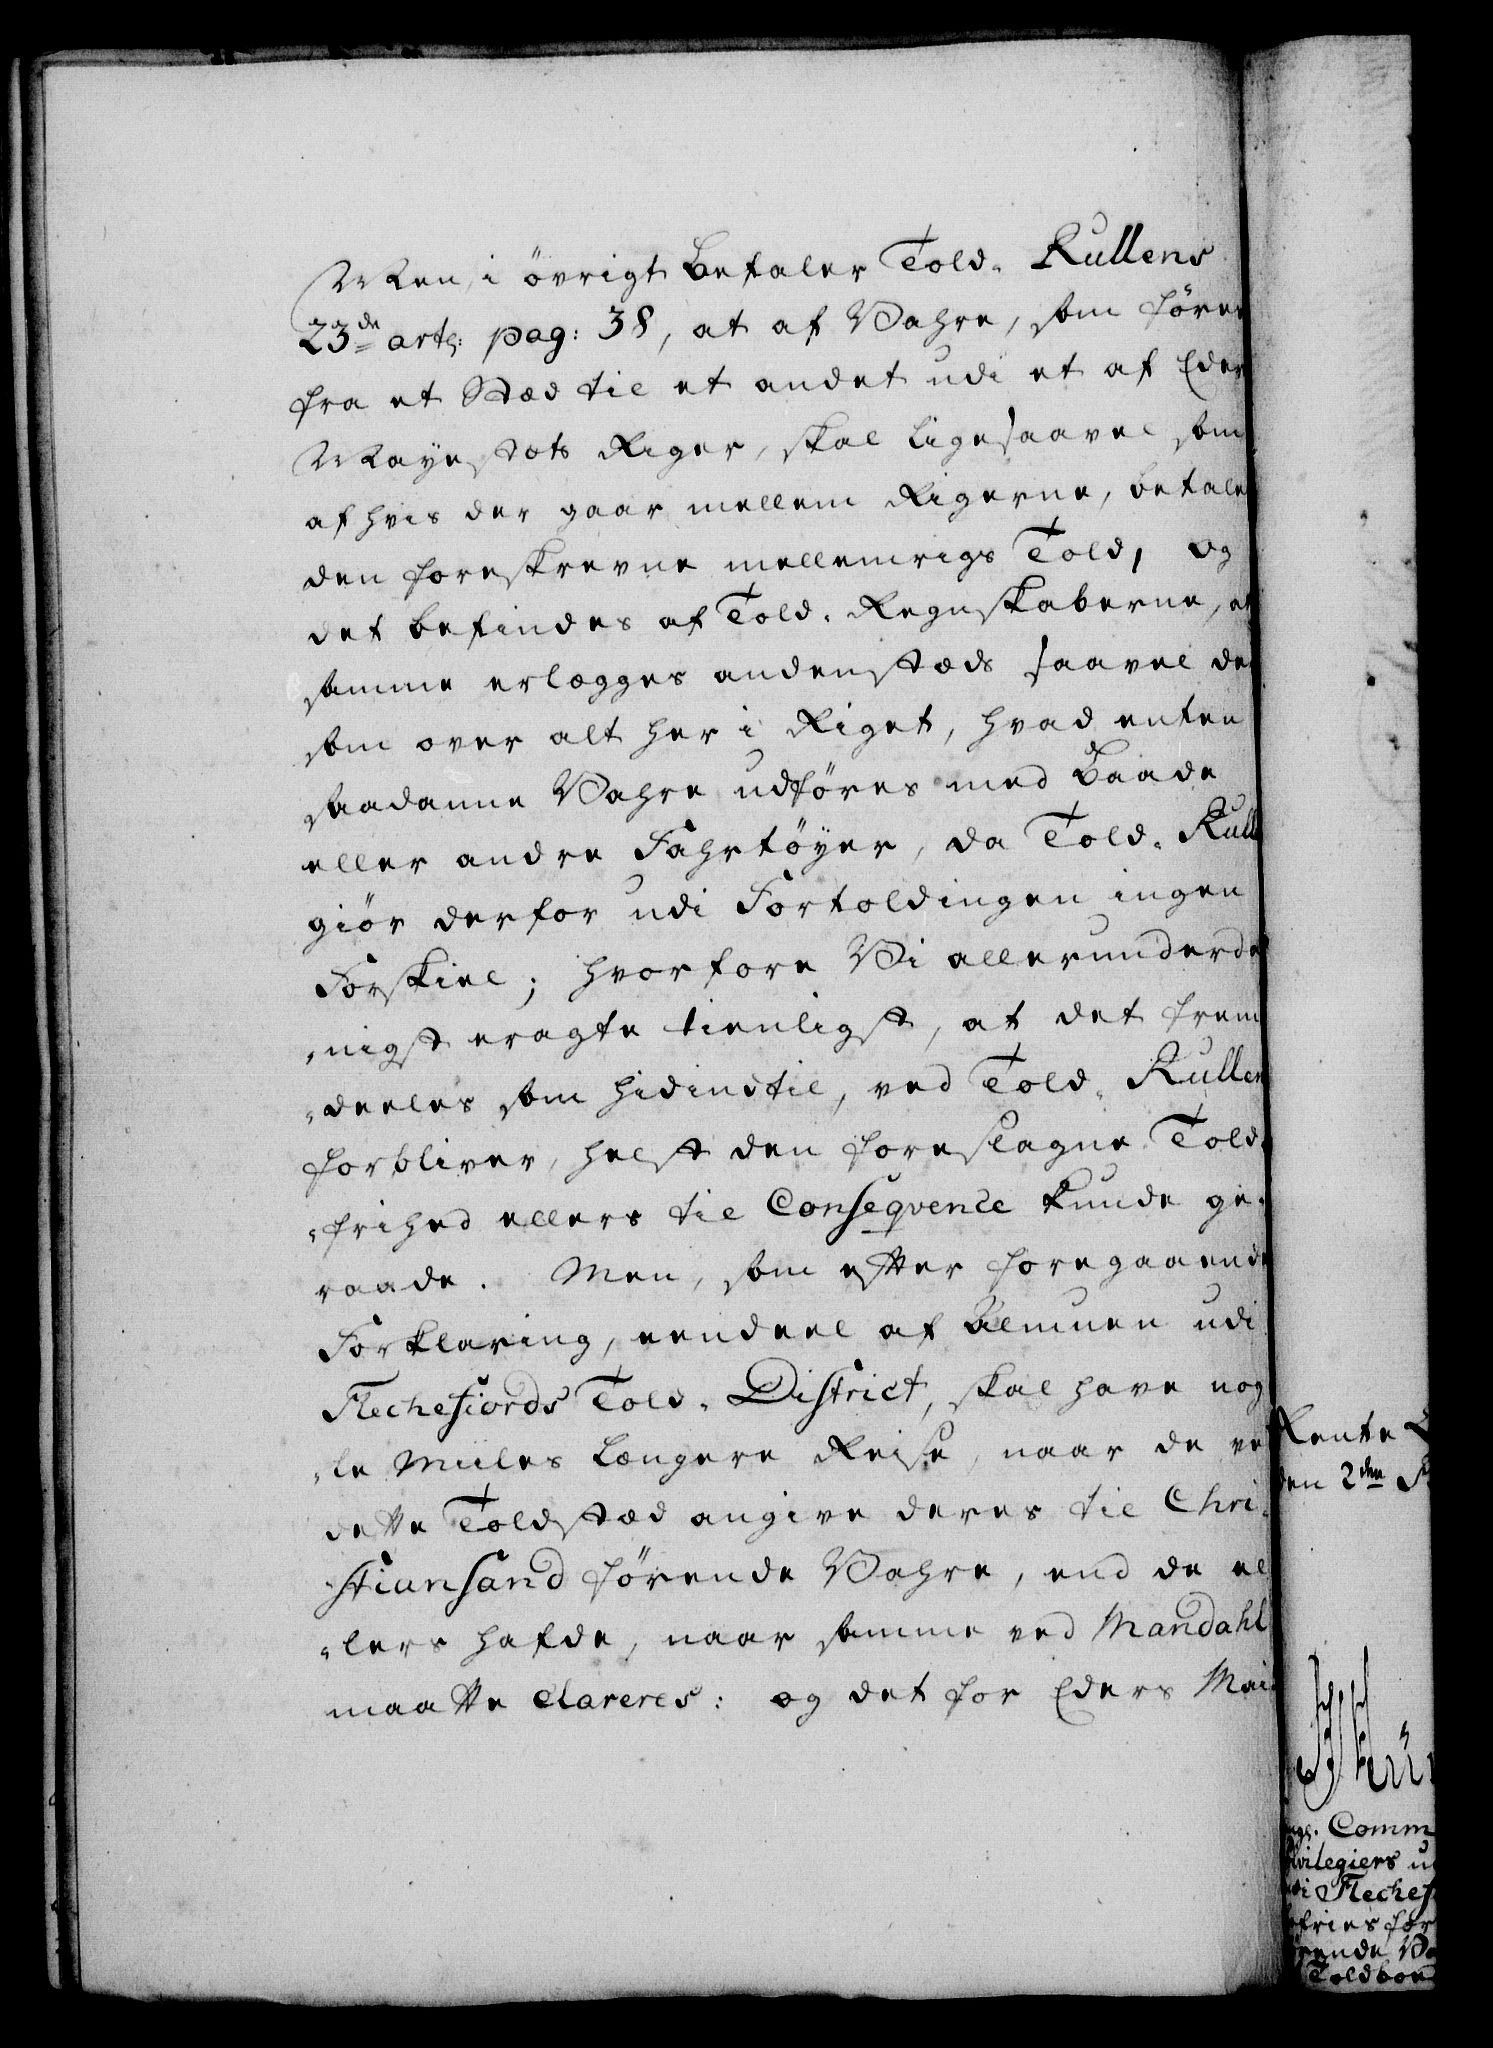 Men, i övrigt befaler Told-Rullens
23de artl: pag: 38, at af Vahre, som föres
fra et Stæd til et andet udi et af Eders
Mayestæts Riger, skal ligesaavel som
af hvis der gaar mellem Rigerne, betales
den foreskrevne mellemrigs Told, og
det befindes af Told-Regnskaberne, at
samme erlægges andenstæds saavel der
som over alt her i Riget, hvad enten
saadanne Vahre udföres med Baade
eller andre Fahrtöyer, da Told-Rull
giör derfor udi Fortoldingen ingen
Forskiel; hvorfore Vi allerunderda
-nigst eragte tienligst, at det frem
-deeles som hidindtil, ved Told-Rullen
forbliver, helst den foreslagne Told-
-frihed ellers til Conseqvence kunde ge-
raade. Men, som efter foregaaende
Forklaring, eendeel af Almuen udi
Flechefiords Told-District, skal have nog
-le Miiles længere Reise, naar de ved
dette Toldstæd angive deres til Chri-
-stiansand förende Vahre, end de el
-lers hafde, naar samme ved Mandahl
maatte Clareres: og det for Eders Mai
Rente
den 2den
Comm
vilegiers u
Flechef
efries for
örende Va
Toldboe